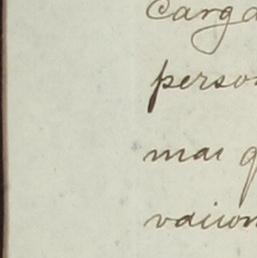 Carga
person
mas q
vacion